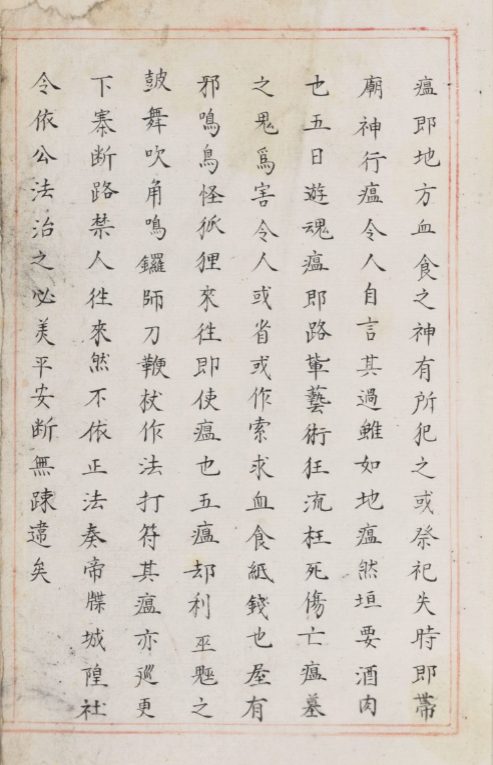 瘟即地方血食之神有所犯之或祭祀失時即帶
廟神行瘟令人自言其過雖如地瘟然垣要酒肉
也五日遊魂瘟即路輂藝術狂流枉死傷亡瘟墓
之鬼爲害令人或省或作索求血食紙錢也屋有
邪鳴鳥怪狐狸來徃即使瘟也五瘟却利巫魘之
皷舞吹角鳴鑼師刀鞭杖作法打符其瘟亦巡更
下寨断路禁人徃來然不依正法奏帝牒城隍社
令依公法治之必美平安断無踈違矣